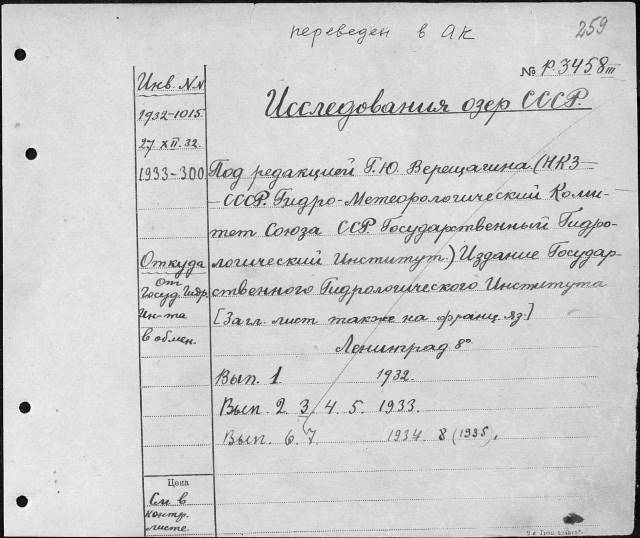 переведен в АК
259
№ Р.3458 III
Исследования озер СССР.
Инв. N.N
1932-1015
27 XII. 32.
1933-300
Под редакцией Г.Ю. Верещагина (НКЗ-
СССР. Гидро-Метеорологический Коми-
тет Союза ССР. Государственный Гидро-
логический Институт.) Издание Государ-
ственного Гидрологического Института
[Загл. лист также на франц. яз.]
Ленинград 8°
Откуда
от
Госуд. Гидр.
Ин-та
в обмен.
Вып. 1 1932.
Вып. 2. 3. 4. 5. 1933.
Вып. 6. 7. 1934 8 (1935).
Цена
См. в
контр.
листе